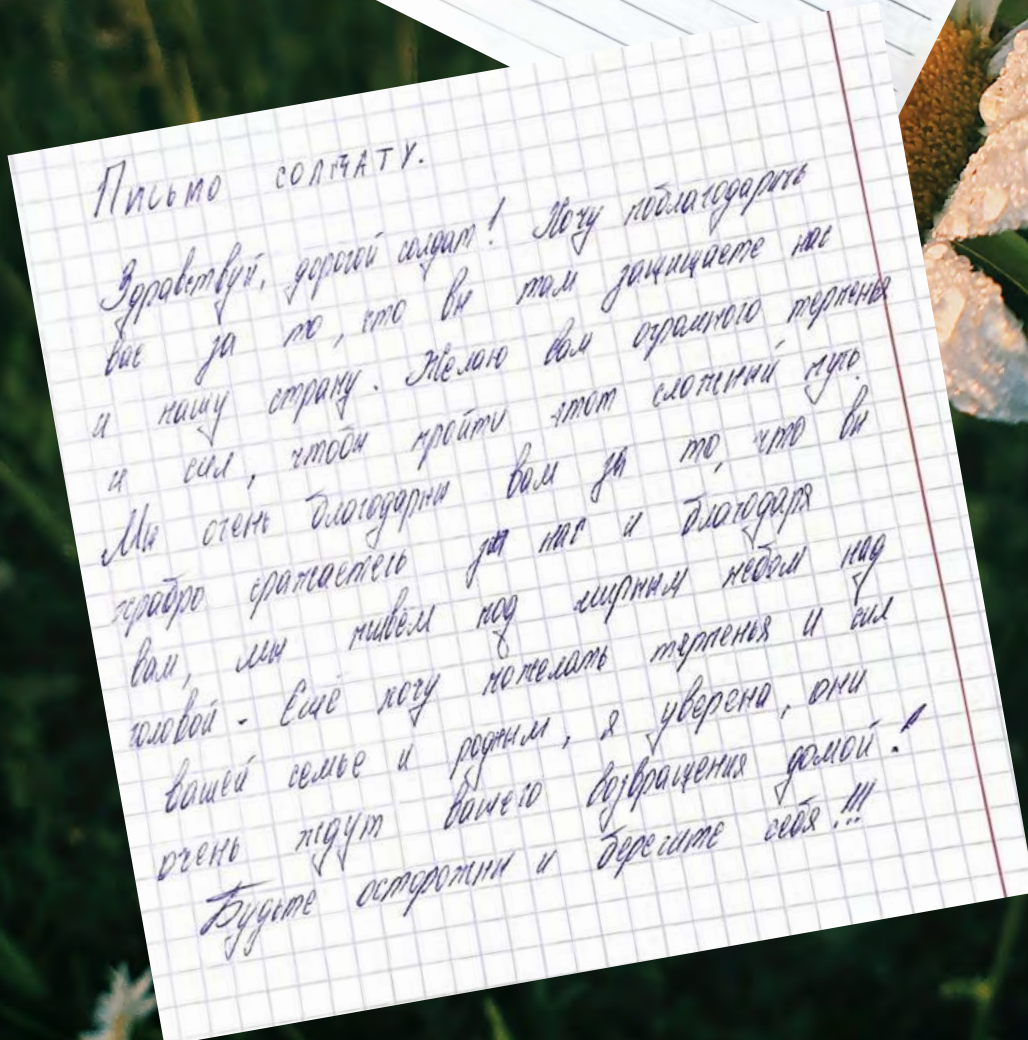 Письмо солдату.
Здравствуй, дорогой солдат! Хочу поблагодарить
вас за то, что вы там защищаете нас
и нашу страну. Желаю вам огромного терпенья
и сил, чтобы пройти этот сложный путь.
Мы очень благодарны вам за то, что вы
храбро сражаетесь за нас и благодаря
вам, мы живём под мирным небом над
головой. Ещё хочу пожелать терпенья и сил
вашей семье и родным, я уверена, они
очень ждут вашего возвращения домой!
Будьте осторожны и берегите себя!!!